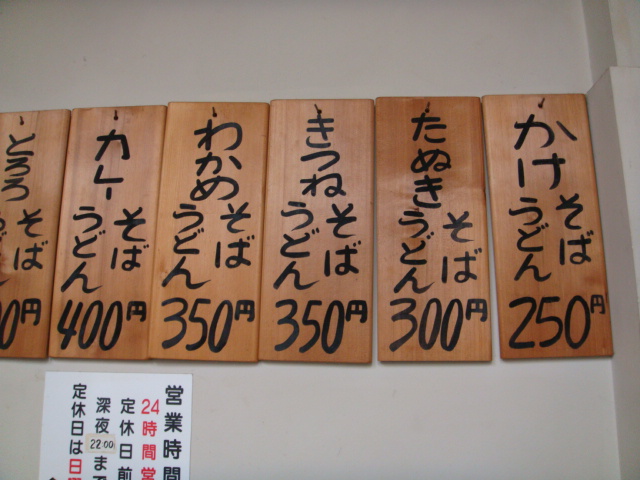 かけ
そば
うどん
250円
たぬき
そば
うどん
300円
きつね
そば
うどん
350円
わかめ
そば
うどん
350円
カレー
そば
うどん
400円
とろろ
そば
0円
営業時間
24時間営
定休日前
深夜22:00まで
定休日は日